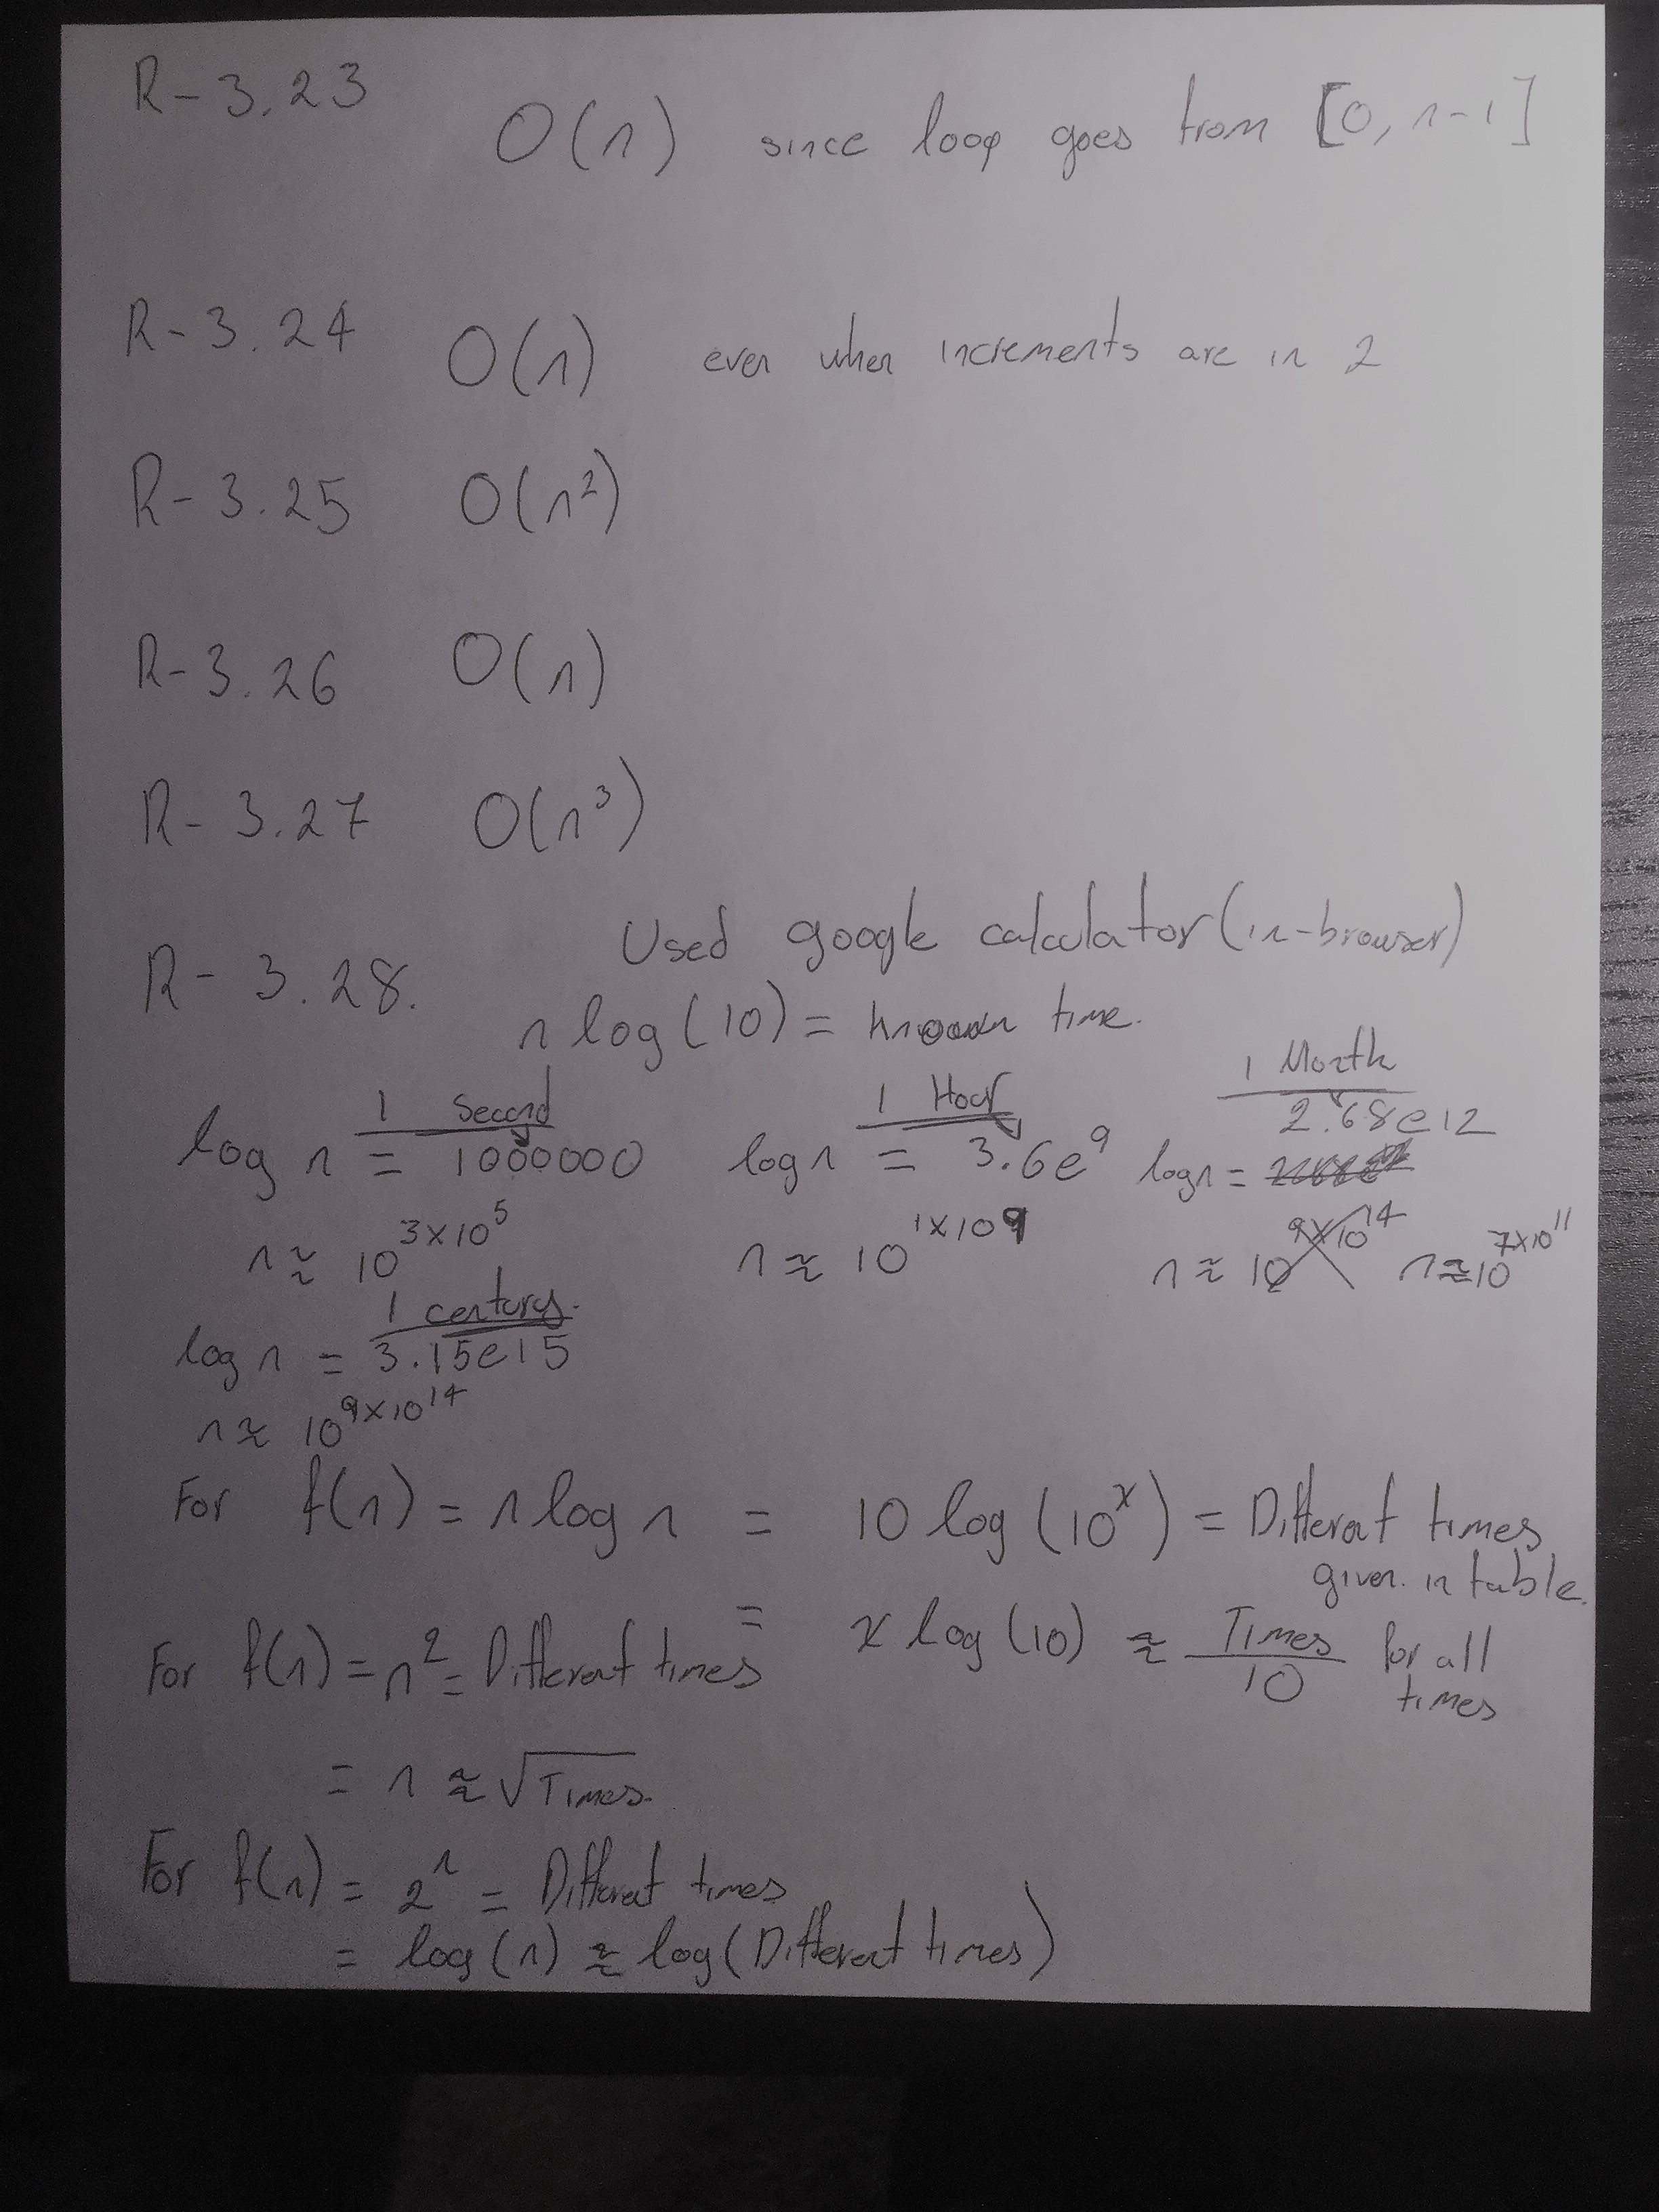 R-3.23 O(n) since loop goes from [0, n-1]
R-3.24 O(n) even when increments are in 2
R-3.25 O(n²)
R-3.26 O(n)
R-3.27 O(n³)
R-3.28. Used google calculator (in-browser)
n log(10) = known time.
1 Second 1 Hour 1 Month
log n = 1000000 log n = 3.6e⁹ log n = 2.68e12
n ≈ 10^3×10⁵ n ≈ 10^1×10⁹ n ≈ 10^9×10¹⁴ n ≈ 10^7×10¹¹
1 century.
log n = 3.15e15
n ≈ 10^9×10¹⁴
For f(n) = n log n = 10 log(10^x) = Different times
given in table.
= x log(10) ≈ Times/10 for all times
For f(n) = n² = Different times
= n ≈ √Times.
For f(n) = 2^n = Different times
= log(n) ≈ log(Different times)